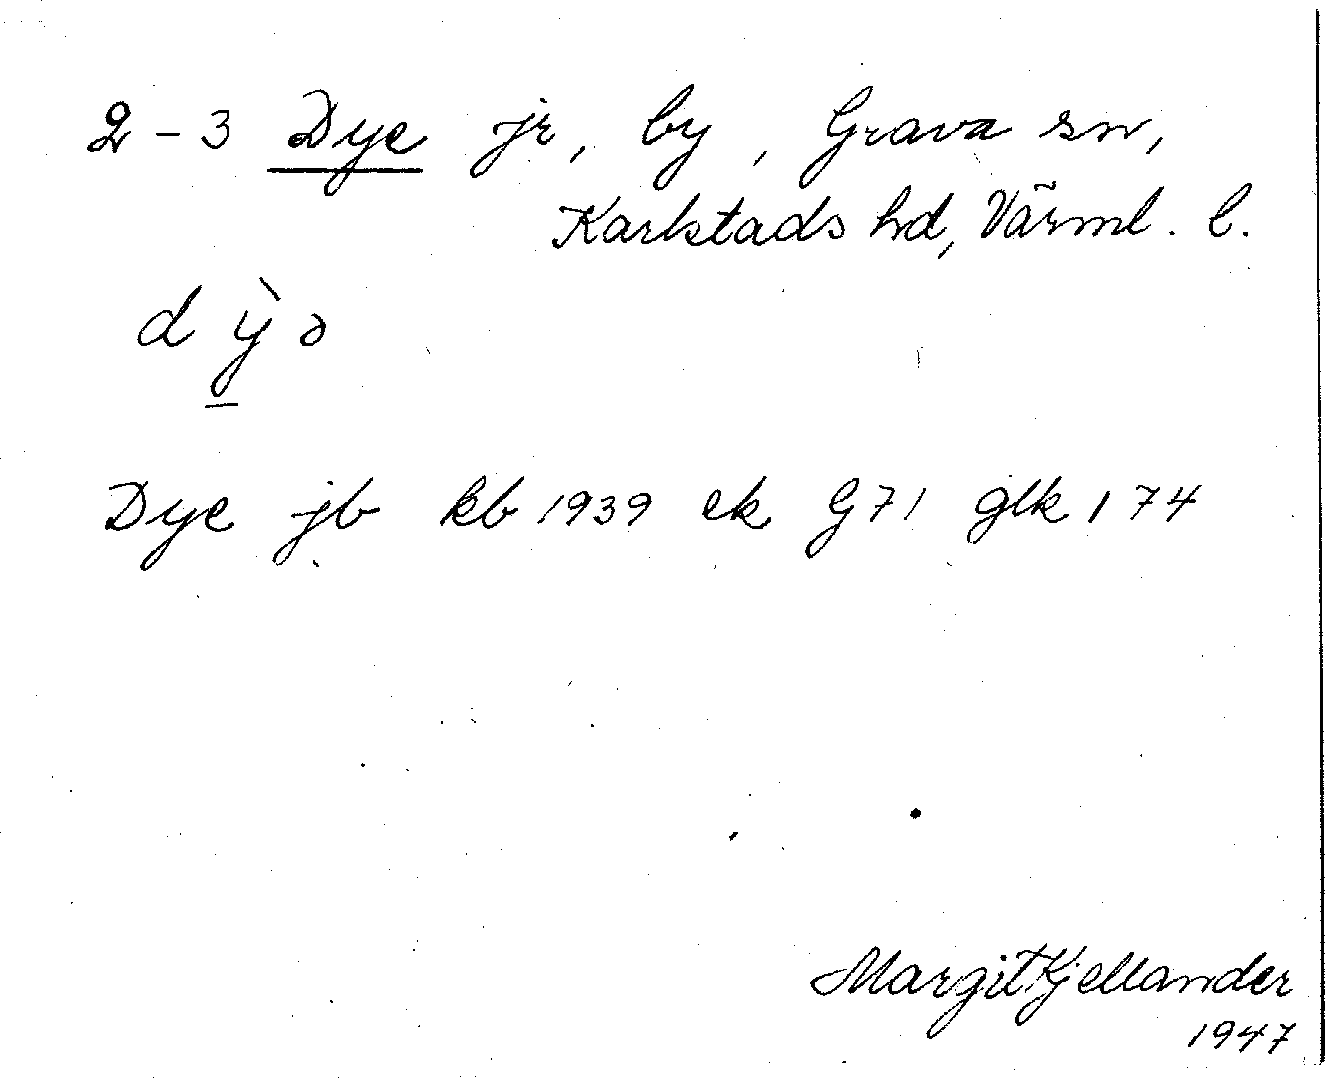 2-3 Dye jr, by, Grava sn,
Karlstads hd, Värml. l.
dỳ̠ə
Dye jb kb 1939 ek G71 glk 174
Margit Kjellander
1947